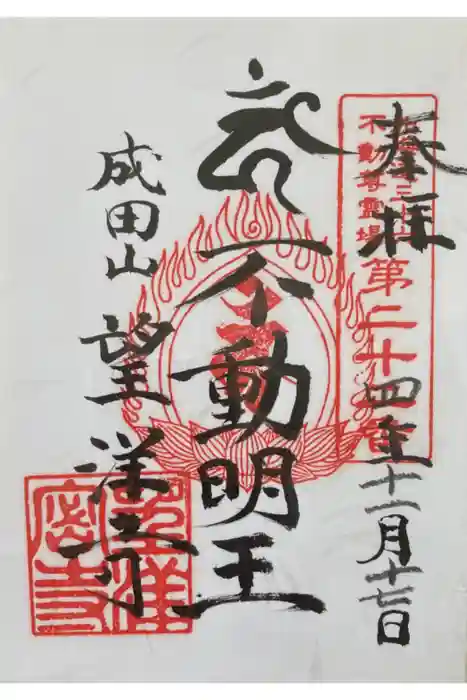 奉拝
十一月十七日
不動尊霊場
第二十四番
不動明王
成田山
望洋寺